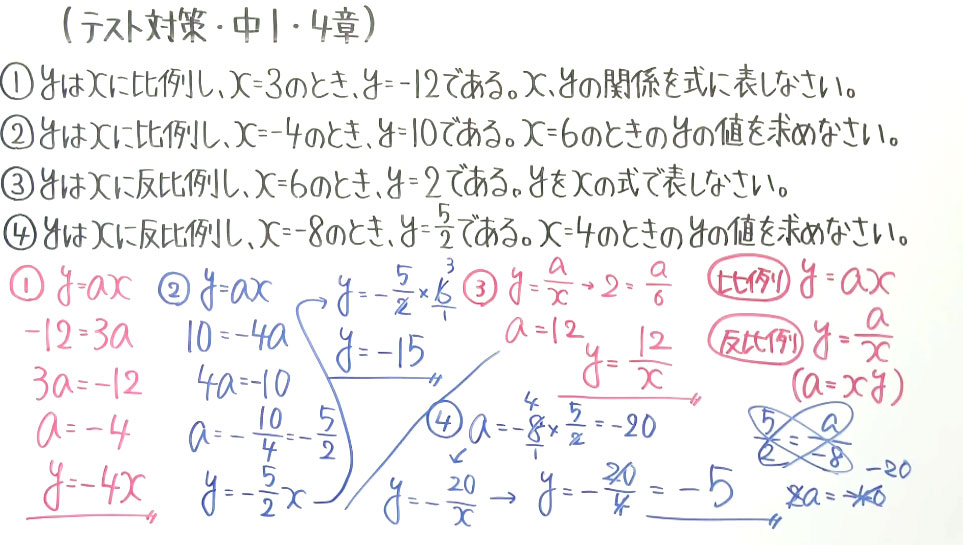 (テスト対策・中1・4章)
①yはxに比例し、x=3のとき、y=-12である。x、yの関係を式に表しなさい。
②yはxに比例し、x=-4のとき、y=10である。x=6のときのyの値を求めなさい。
③yはxに反比例し、x=6のとき、y=2である。yをxの式で表しなさい。
④yはxに反比例し、x=-8のとき、y=5/2である。x=4のときのyの値を求めなさい。
① y=ax
-12=3a
3a=-12
a=-4
y=-4x
② y=ax
10=-4a
4a=-10
a=-10/4=-5/2
y=-5/2x
y=-5/2×6 3 1
y=-15
③ y=a/x→2=a/6
a=12
y=12/x
④ a=-8×5/2=-20
4 1
y=-20/x → y=-20/4=-5
比例 y=ax
反比例 y=a/x
(a=xy)
5/2=a/-8
-20
2a=-40